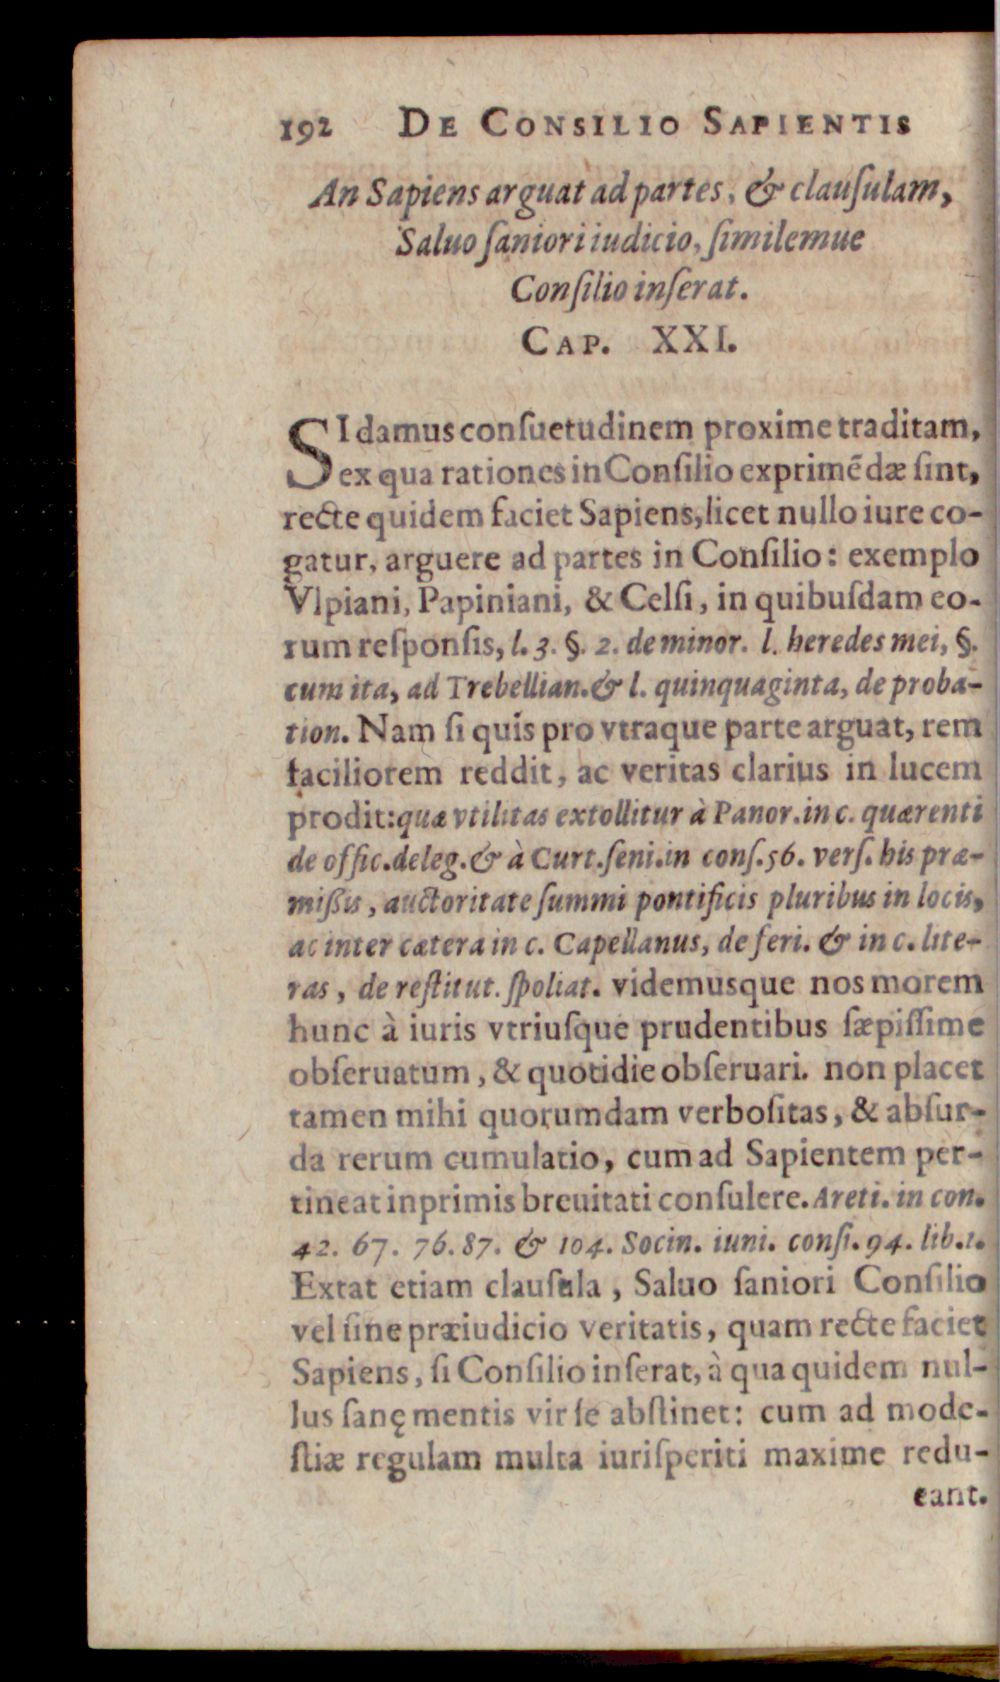 192 DE CONSILIO SAPIENTIS
An Sapiens arguat ad partes, & clauſulam,
Saluo ſaniori iudicio, ſimilemue
Conſilio inſerat.
CAP. XXI.
SI damus conſuetudinem proxime traditam,
ex qua rationes in Conſilio exprimẽdæ ſint,
recte quidem faciet Sapiens, licet nullo iure co-
gatur, arguere ad partes in Conſilio: exemplo
Vlpiani, Papiniani, & Celſi, in quibuſdam eo-
rum reſponſis, l. 3. §. 2. de minor. l. heredes mei, §.
cum ita, ad Trebellian. & l. quinquaginta, de proba-
tion. Nam ſi quis pro vtraque parte arguat, rem
faciliorem reddit, ac veritas clarius in lucem
prodit: quæ vtilitas extollitur à Panor. in c. quærenti
de offic. deleg. & à Curt. ſeni. in conſ. 56. verſ. his præ-
mißis, auctoritate ſummi pontificis pluribus in locis,
ac inter cætera in c. Capellanus, de feri. & in c. lite-
ras, de reſtitut. ſpoliat. videmusque nos morem
hunc à iuris vtriuſque prudentibus ſæpiſſime
obſeruatum, & quotidie obſeruari. non placet
tamen mihi quorumdam verboſitas, & abſur-
da rerum cumulatio, cum ad Sapientem per-
tineat inprimis breuitati conſulere. Areti. in con.
42. 67. 76. 87. & 104. Socin. iuni. conſi. 94. lib. 1.
Extat etiam clauſula, Saluo ſaniori Conſilio
vel ſine præiudicio veritatis, quam recte faciet
Sapiens, ſi Conſilio inſerat, à qua quidem nul-
lus ſanę mentis vir ſe abſtinet: cum ad mode-
ſtiæ regulam multa iuriſperiti maxime redu-
cant.